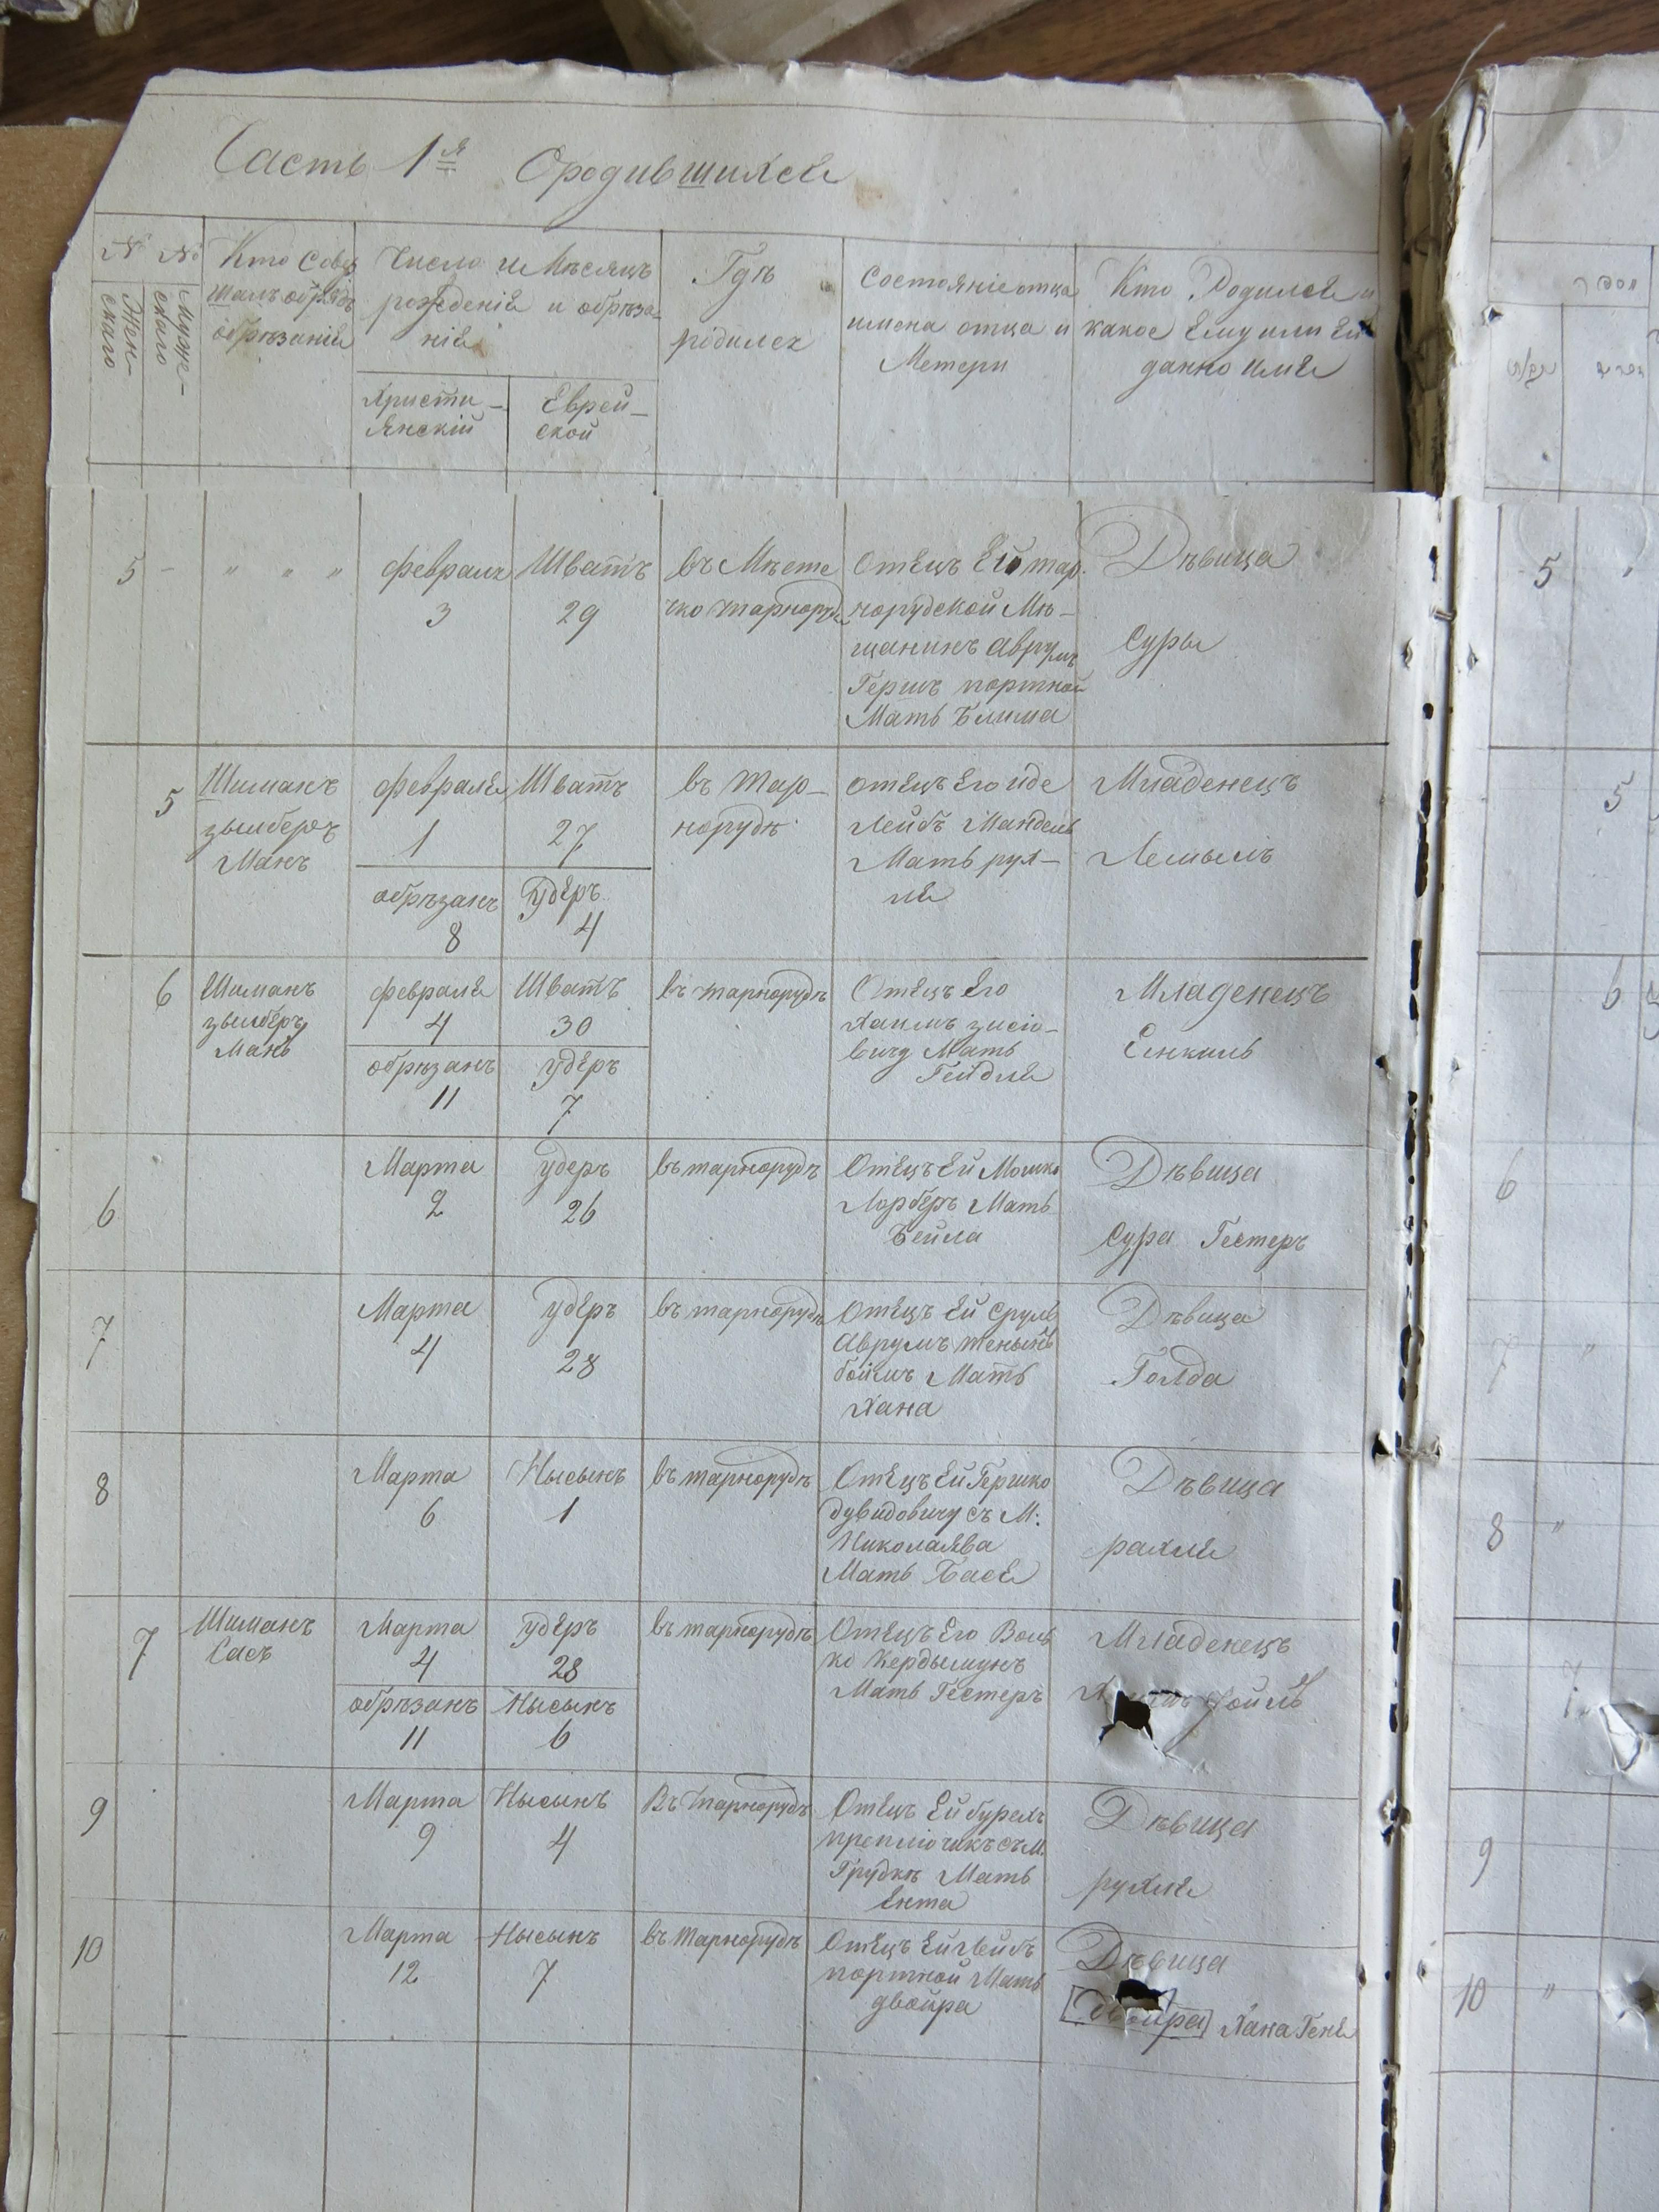 Часть 1я Ородившихся
№ №
Женскаго
Мужескаго
Кто Совер
шалъ обрядъ
обрѣзанія
Число и Мѣсяцъ
рожденія и обрѣза
нія
Христи-
Янскій
Еврей-
ской
Гдѣ
родился
Состояніе отца
имена отца и
Матери
Кто Родился и
какое Ему или Ей
данно имя
5 - " " "
февраля
3
Шватъ
29
въ Мѣсте
чко тарноруд
Отецъ Ей тар
норудской Мѣ-
щанинъ Аврумъ
Гершъ портной
Мать
Дѣвица
Суры
5
Шиманъ
зыльберъ
Манъ
февраля
1
обрѣзанъ
8
Шватъ
27
Удеръ
4
въ Тар-
норудѣ
отецъ Его иде
Лейбъ Мандель
Мать рух-
ля
Младенецъ
6
Шиманъ
зыльберъ
Манъ
февраля
4
обрѣзанъ
11
Шватъ
30
удеръ
7
въ тарнорудѣ
Отецъ Его
Хаимъ зисіо-
вичу Мать
Гейдля
Младенецъ
6
Марта
2
удеръ
26
въ тарнорудѣ
Отецъ Ей Мошко
Лорберъ Мать
Бейла
Дѣвица
Сура Гестеръ
7
Марта
4
удеръ
28
въ тарнорудѣ
Отецъ Ей Сруль
Аврумъ тенынъ
боймъ Мать
Хана
Дѣвица
Голда
8
Марта
6
Нысынъ
1
въ тарнорудѣ
Отецъ Ей Гершко
дувидовичу съ М:
Николаява
Мать Бася
Дѣвица
рахля
7
Шиманъ
Сасъ
Марта
4
обрѣзанъ
11
удеръ
28
Нысынъ
6
въ тарнорудѣ
Отецъ Его Воль
ко Кердыманъ
Мать Гестеръ
Младенецъ
9
Марта
9
Нысынъ
4
Въ тарнорудѣ
Отецъ Ей
съ М.
Грудкѣ Мать
Ента
Дѣвица
рухля
10
Марта
12
Нысынъ
7
въ Тарнорудѣ
Отецъ Ей Лейбъ
портной Мать
двойра
Дѣвица
двойра Хана Геня
5
5
6
6
7 "
8 "
7
9
10 "